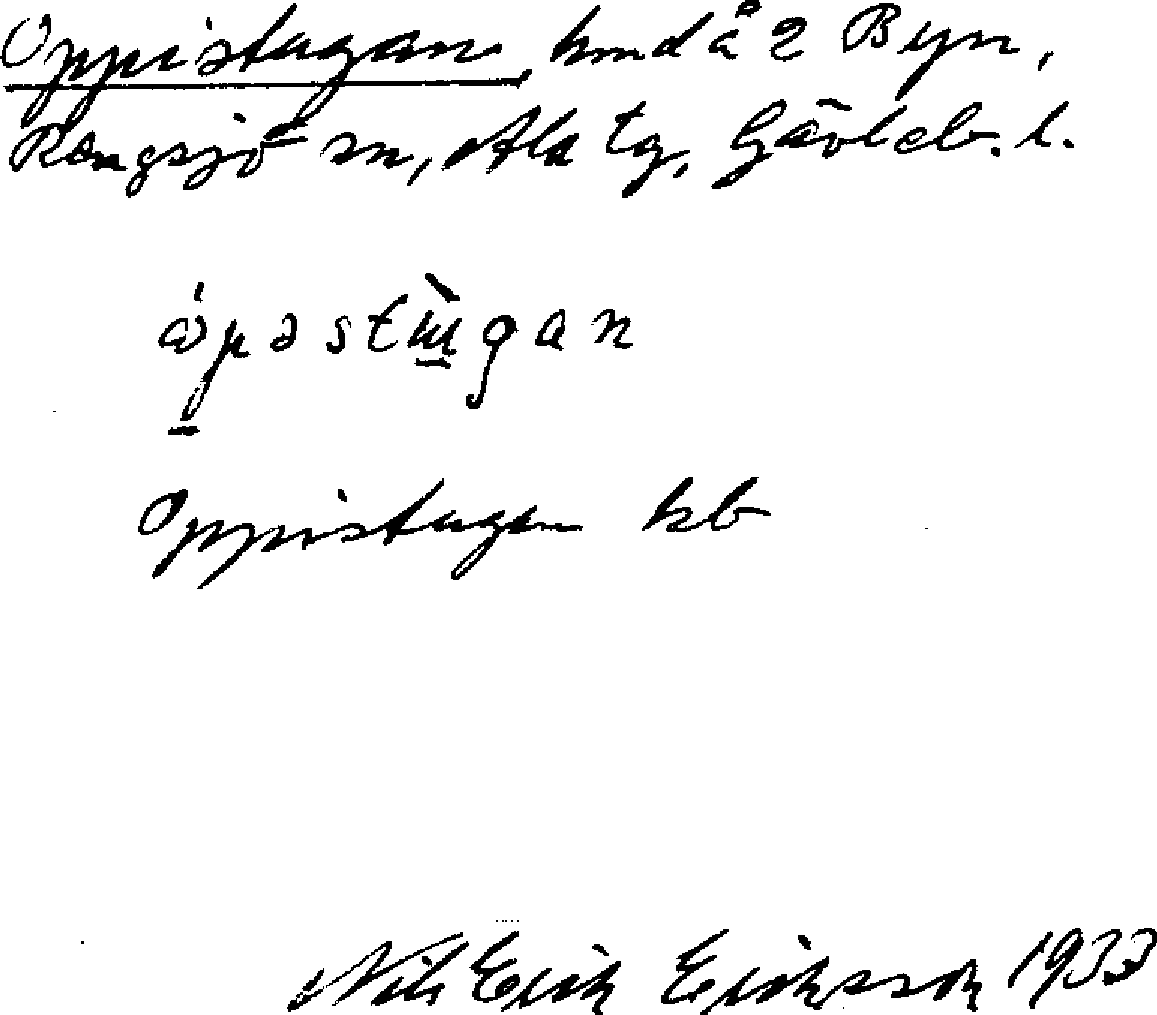 Oppistugan, hmd å 2 Byn,
Rengsjö sn, Ala tg, Gävleb. l.
o̱pəstu̱gan
Oppistugan kb
Nils Erik Eriksson 1933